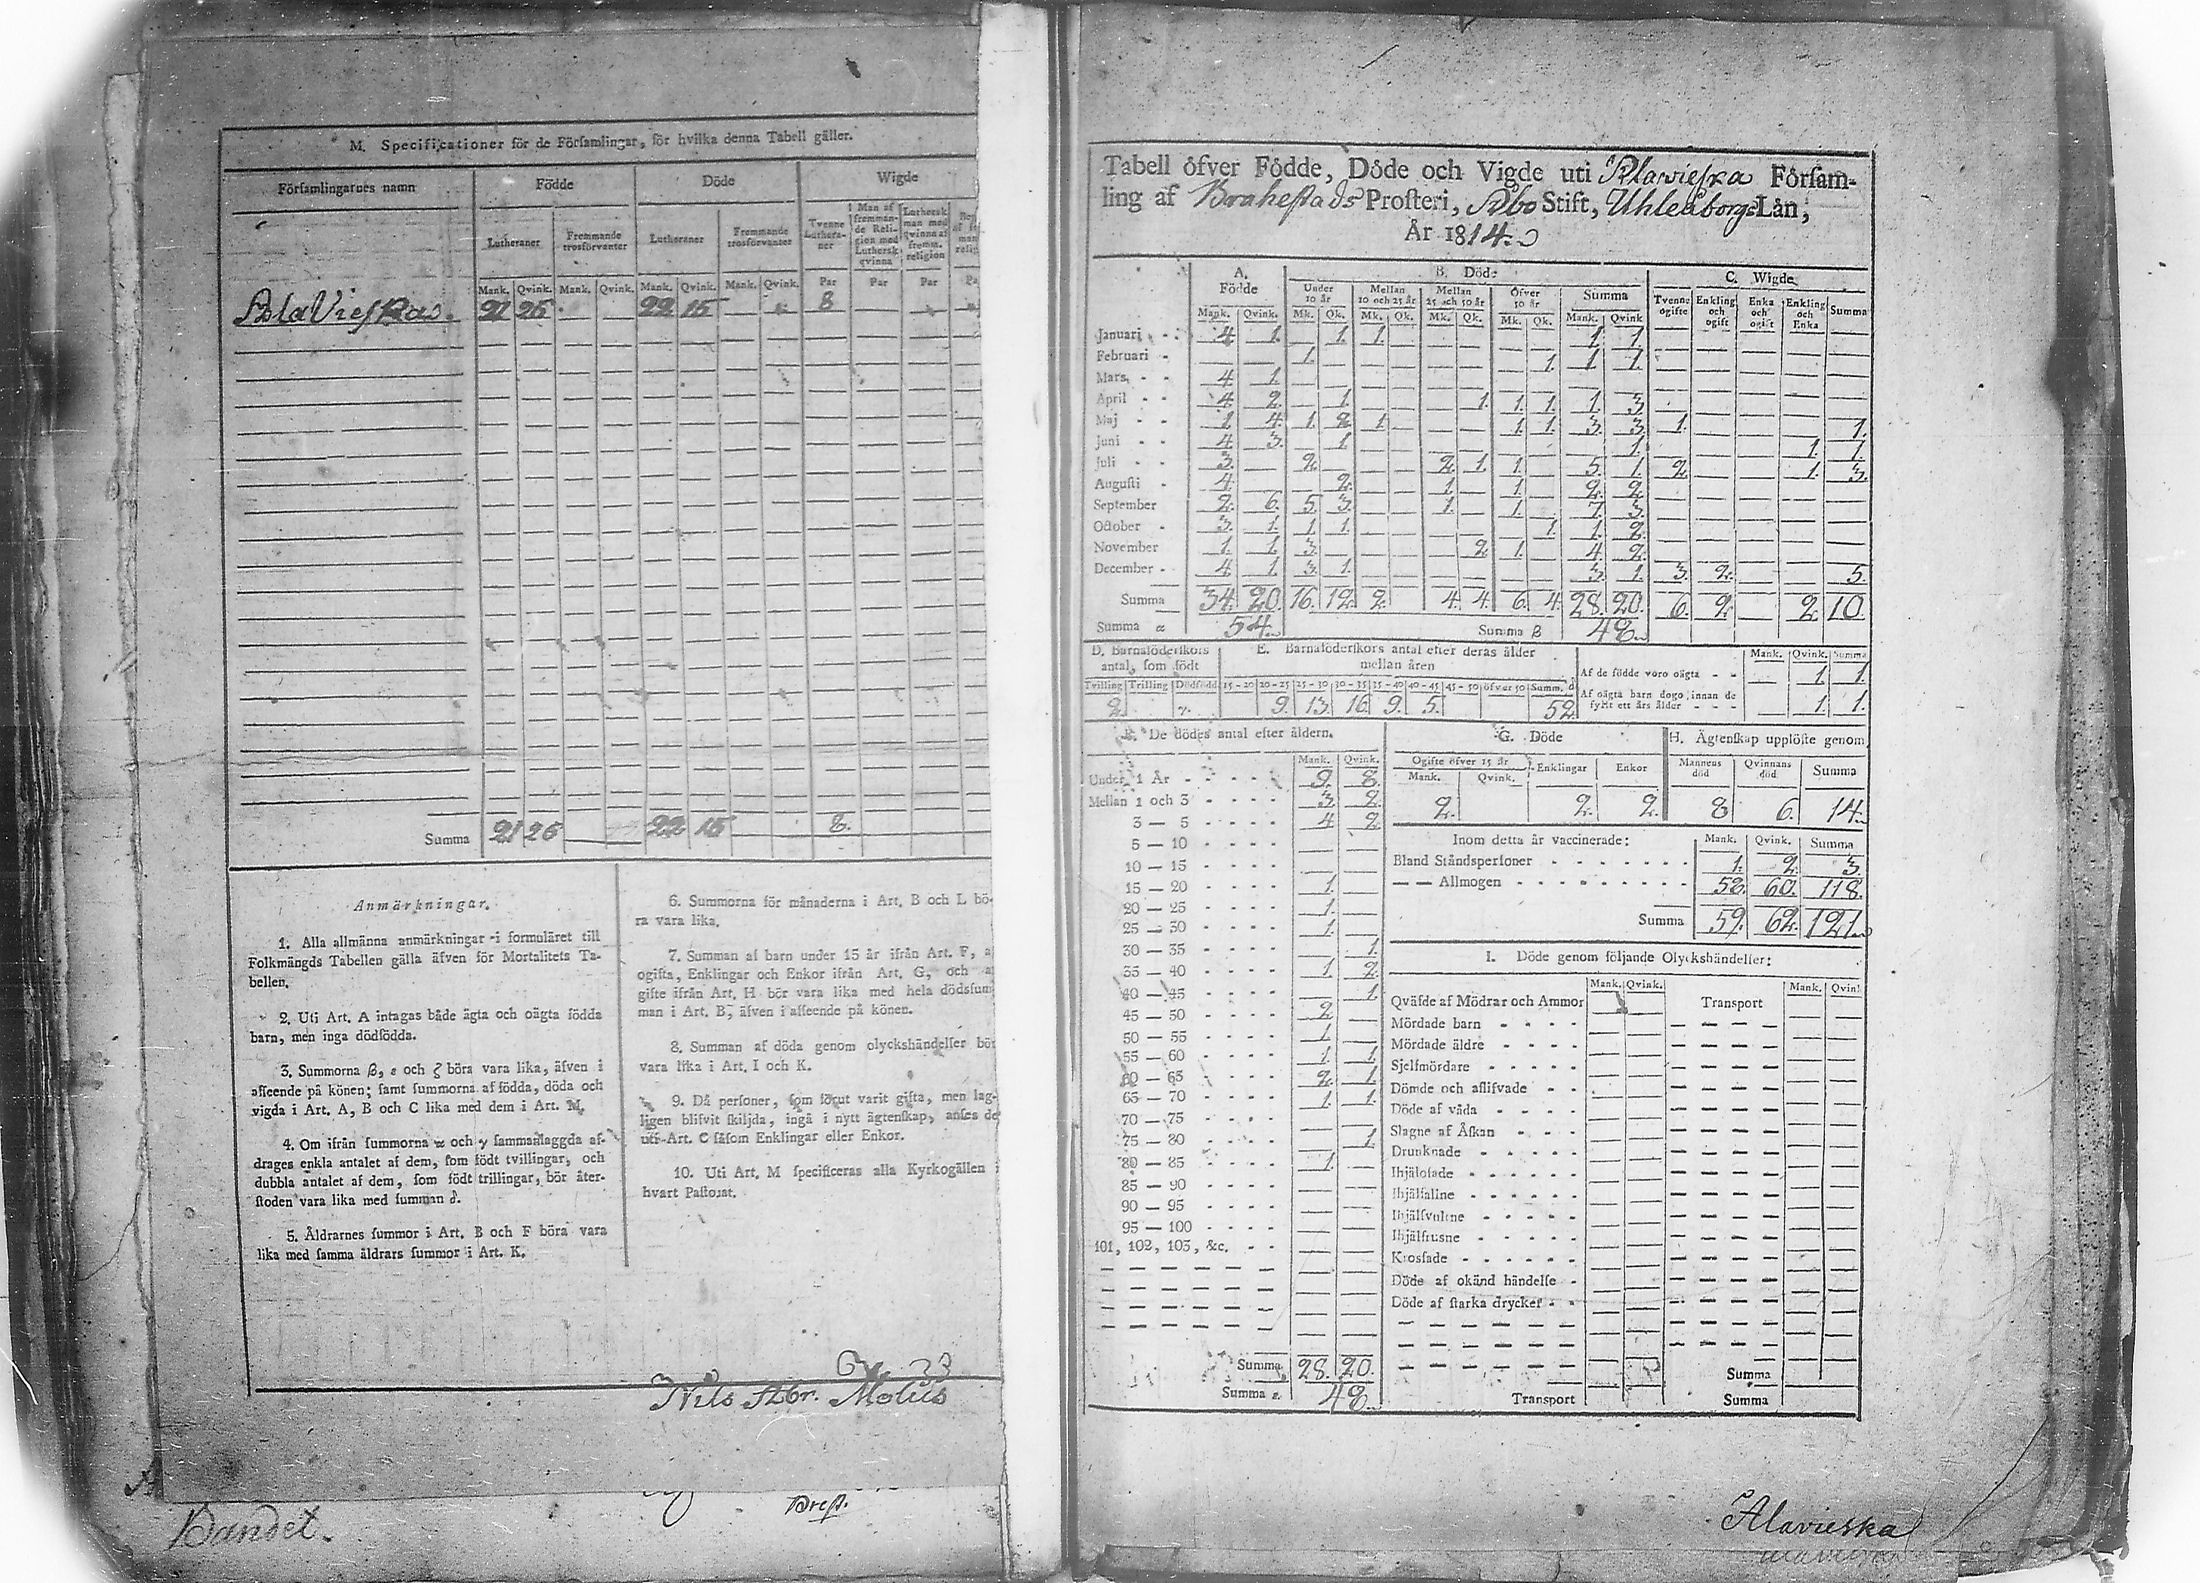 M. Specificationer för de Förſamlingar, för hvilka denna Tabell gäller.
Förſamlingarnes namn
Födde
Döde
Wigde
Lutheraner
Fremmande trosförvanter
Lutheraner
Fremmande trosförvanter
Tvenne Luthera-ner
Man af fremman-de Reli-gion med Lutherſk qvinna
Lutherſk man med qvinna af fremm. religion
Mank. Qvink. Mank. Qvink. Mank. Qvink. Mank. Qvink. Par Par Par
AlaVieſka 21 26 22 15 8
Summa 21 26 22 15 8.
Anmärkningar.
1. Alla allmänna anmärkningar i formuläret till
Folkmängds Tabellen gälla äfven för Mortalitets Ta-
bellen.
2. Uti Art. A intagas både ägta och oägta födda
barn, men inga dödfödda.
3. Summorna β, ε och ζ böra vara lika, äfven i
afſeende på könen; ſamt ſummorna af födda, döda och
vigda i Art. A, B och C lika med dem i Art. M.
4. Om ifrån ſummorna α och γ ſammanlaggda af-
drages enkla antalet af dem, ſom födt tvillingar, och
dubbla antalet af dem, ſom födt trillingar, bör åter-
ſtoden vara lika med ſumman δ.
5. Åldrarnes ſummor i Art. B och F böra vara
lika med ſamma åldrars ſummor i Art. K.
6. Summorna för månaderna i Art. B och L bö-
ra vara lika.
7. Summan af barn under 15 år ifrån Art. F, a
ogifta, Enklingar och Enkor ifrån Art. G, och a
gifte ifrån Art. H bör vara lika med hela dödsſum
man i Art. B, äfven i afſeende på könen.
8. Summan af döda genom olyckshändelſer bör
vara lika i Art. I och K.
9. Då perſoner, ſom förut varit gifta, men lag-
ligen blifvit ſkiljda, ingå i nytt ägtenſkap, anſes de
uti Art. C ſåſom Enklingar eller Enkor.
10. Uti Art. M ſpecificeras alla Kyrkogällen i
hvart Paſtorat.
Nils Åkbr. Molius
Bandet.
Preſt.
Tabell öfver Födde, Döde och Vigde uti Alavieſka Förſam-
ling af Braheſtads Proſteri, Åbo Stift, Uhleåborgs Län,
År 1814.
A. Födde
B. Döde
C. Wigde
Under 10 år
Mellan 10 och 25 år
Mellan 25 och 50 år
Öfver 50 år
Summa
Tvenne ogifte
Enkling och ogift
Enka och ogift
Enkling och Enka
Summa
Mank. Qvink. Mk. Qk. Mk. Qk. Mk. Qk. Mk. Qk. Mank. Qvink
Januari 4. 1. 1. 1. 1. 1.
Februari 1. 1. 1. 1.
Mars 4. 1.
April 4. 2. 1. 1. 1. 1. 1. 3.
Maj 1. 4. 1. 2. 1. 1. 1. 3. 3. 1. 1.
Juni 4. 3. 1. 1. 1. 1.
Juli 3. 2. 2. 1. 1. 5. 1. 2. 1. 3.
Auguſti 4. 2. 1. 1. 2. 2.
September 2. 6. 5. 3. 1. 1. 7. 3.
October 3. 1. 1. 1. 1. 1. 2.
November 1. 1. 3. 2. 1. 4. 2.
December 4. 1. 3. 1. 3. 1. 3. 2. 5.
Summa 34. 20. 16. 12. 2. 4. 4. 6. 4. 28. 20. 6. 2. 2. 10.
Summa α 54. Summa β 48.
D. Barnaföderſkors antal, ſom födt
E. Barnaföderſkors antal efter deras ålder mellan åren
Tvilling Trilling Dödfödd 15-20 20-25 25-30 30-35 35-40 40-45 45-50 öfver 50 Summ. δ
2. 9. 13. 16. 9. 5. 52.
Mank. Qvink. Summa
Af de födde voro oägta 1. 1.
Af oägta barn dogo innan de
fyllt ett års ålder 1. 1.
F. De dödes antal efter åldern.
Mank. Qvink.
Under 1 År 9. 8.
Mellan 1 och 3 3. 2.
3 — 5 4 2
5 — 10
10 — 15
15 — 20 1.
20 — 25 1.
25 — 30 1.
30 — 35 1.
35 — 40 1. 2.
40 — 45 1.
45 — 50 2.
50 — 55 1.
55 — 60 1. 1.
60 — 65 2. 1.
65 — 70 1. 1.
70 — 75
75 — 80 1.
80 — 85 1.
85 — 90
90 — 95
95 — 100
101, 102, 103, &c.
Summa 28. 20.
Summa ε. 48.
G. Döde
Ogifte öfver 15 år Enklingar Enkor
Mank. Qvink.
2. 2. 2.
H. Ägtenſkap upplöſte genom
Mannens död Qvinnans död Summa
8 6. 14.
Inom detta år vaccinerade: Mank. Qvink. Summa
Bland Ståndsperſoner 1. 2. 3.
— — Allmogen 58. 60. 118.
Summa 59. 62. 121.
I. Döde genom följande Olyckshändelſer:
Mank. Qvink. Mank. Qvink
Qväfde af Mödrar och Ammor Transport
Mördade barn
Mördade äldre
Sjelfmördare
Dömde och aflifvade
Döde af våda
Slagne af Åſkan
Drunknade
Ihjälofade
Ihjälfallne
Ihjälſvultne
Ihjälfrusne
Krosſade
Döde af okänd händelſe
Döde af ſtarka drycker
Summa
Transport Summa
Alavieska